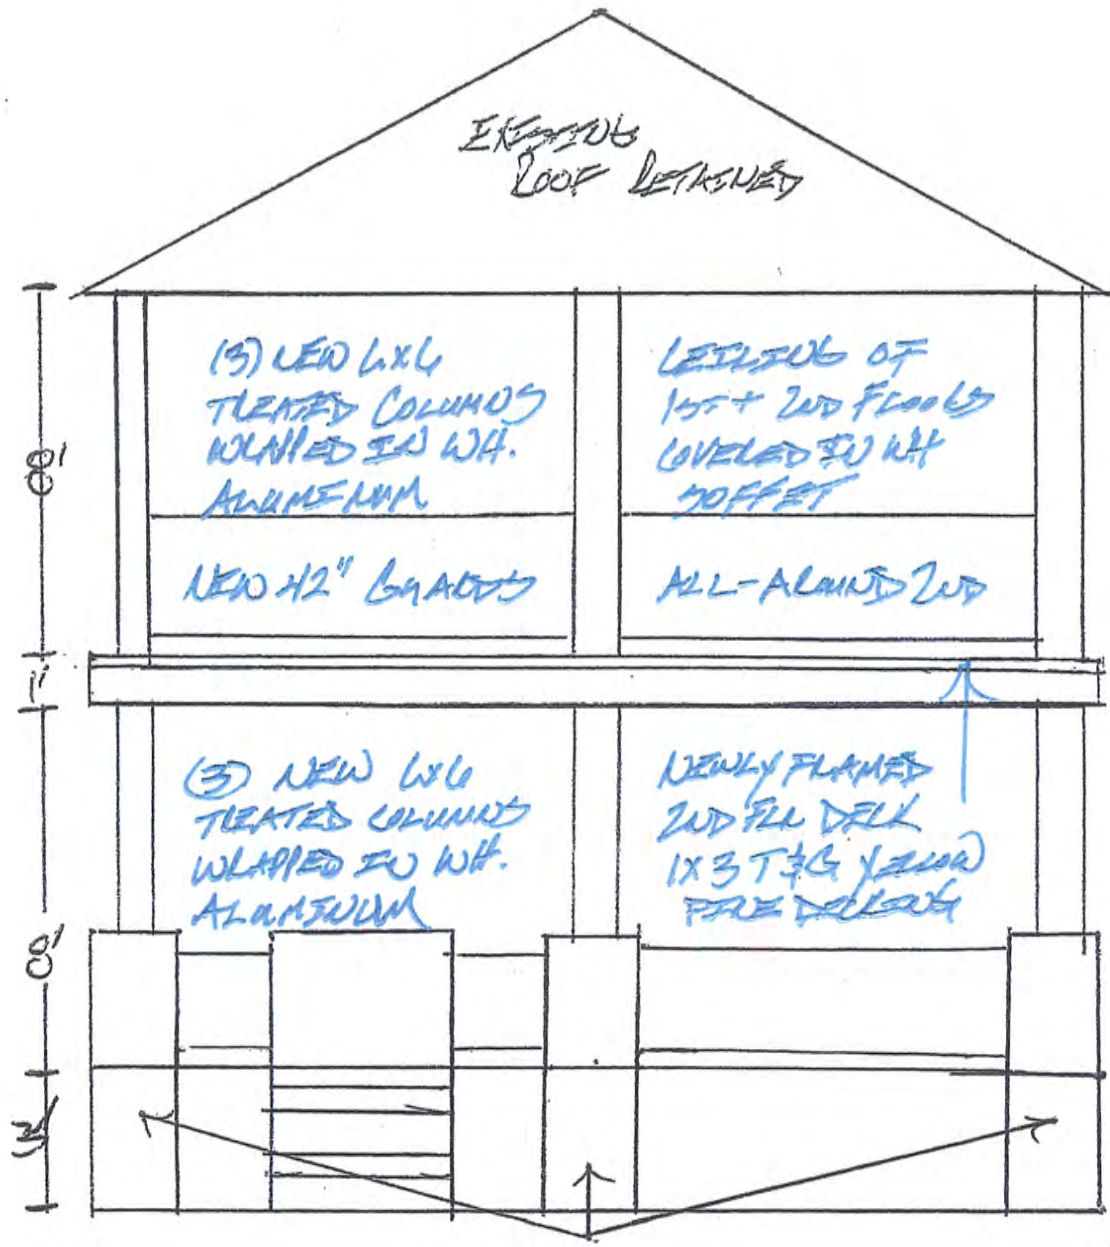 EXISTING
ROOF RETAINED
(3) NEW 6X6
TREATED COLUMNS
WRAPPED IN WH.
ALUMINUM
CEILING OF
1ST + 2ND FLOORS
COVERED IN WH
SOFFIT
8'
NEW 42" GUARDS
ALL-AROUND 2ND
1'
(3) NEW 6X6
TREATED COLUMNS
WRAPPED IN WH.
ALUMINUM
NEWLY FRAMED
2ND FLR DECK
1X3 T&G YELLOW
PINE DECKING
8'